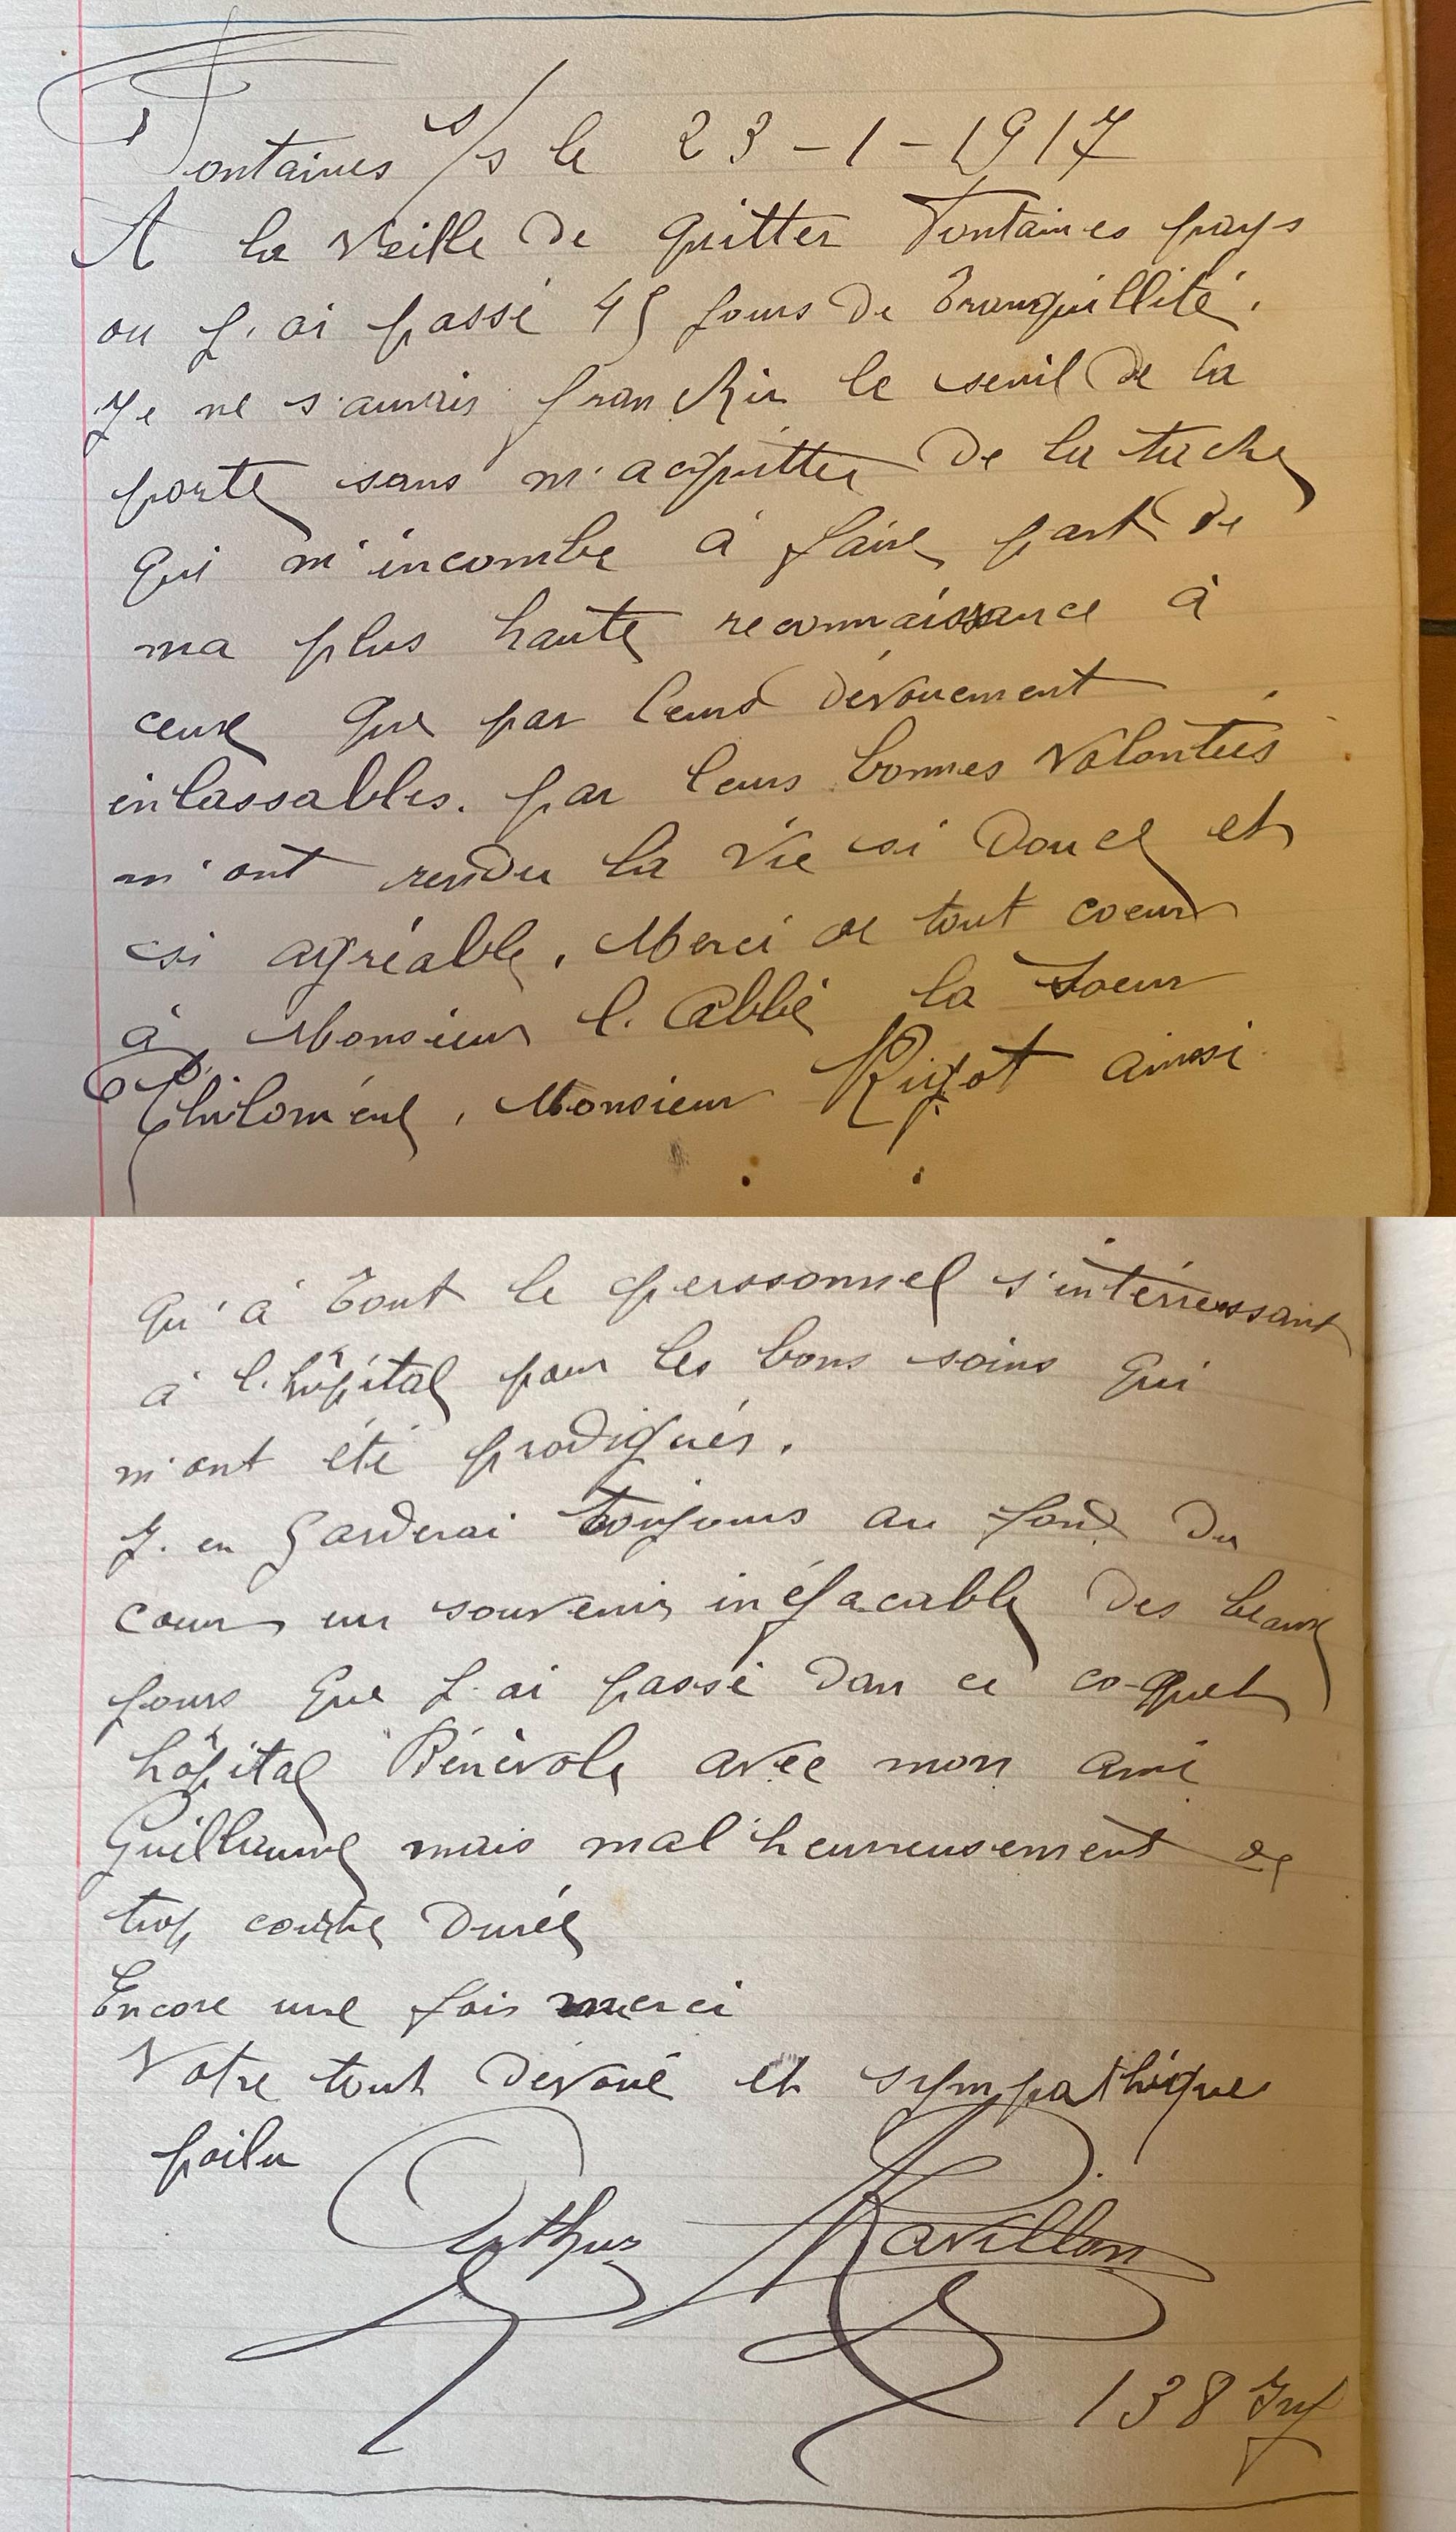 Fontaines s/s le 23-1-1917
A la veille de quitter Fontaines pays
ou j'ai passé 45 jours de tranquillité.
Je ne s'aurais franchir le seuil de la
porte sans m'acquitter de la tache
qui m'incombe à faire part de
ma plus haute reconnaissance à
ceux que par leurs dévouement
inlassables. par leurs bonnes volontées
m'ont rendu la vie si douce et
si agréable. Merci de tout coeur
à Monsieur l'Abbé la Soeur
Philoméne, Monsieur Rigot ainsi
qu'à tout le perssonnel s'intérressant
à l'hôpital pour les bons soins qui
m'ont été prodigués.
J'en garderai toujours au fond du
cour un souvenir inéfacable des beaux
jours que j'ai passé dan ce coquet
hôpital Bénévole avec mon ami
Guillaume mais mal'heureusement de
trop courte durée
Encore une fois merci
Votre tout dévoué et sympathique
poilu
Arthur Ravillon
138 Inf